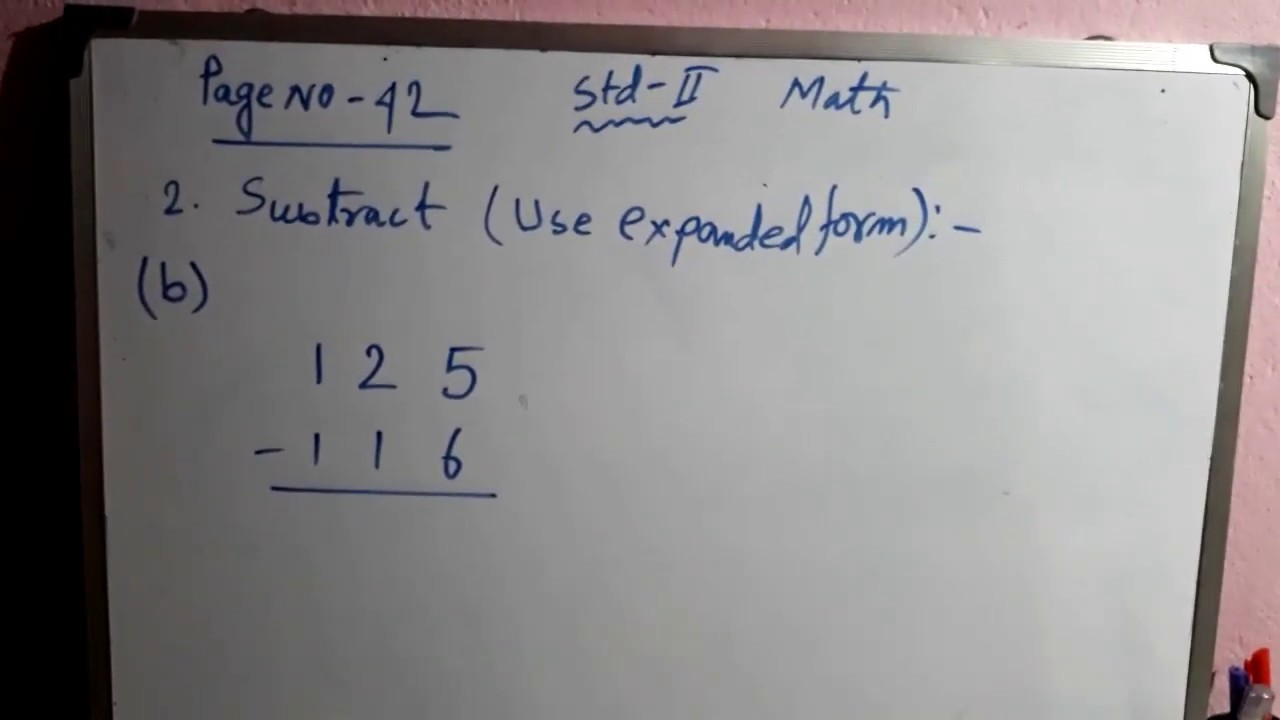 Page NO - 42 Std-II Math
2. Subtract (Use expanded form):-
(b)
1 2 5
- 1 1 6